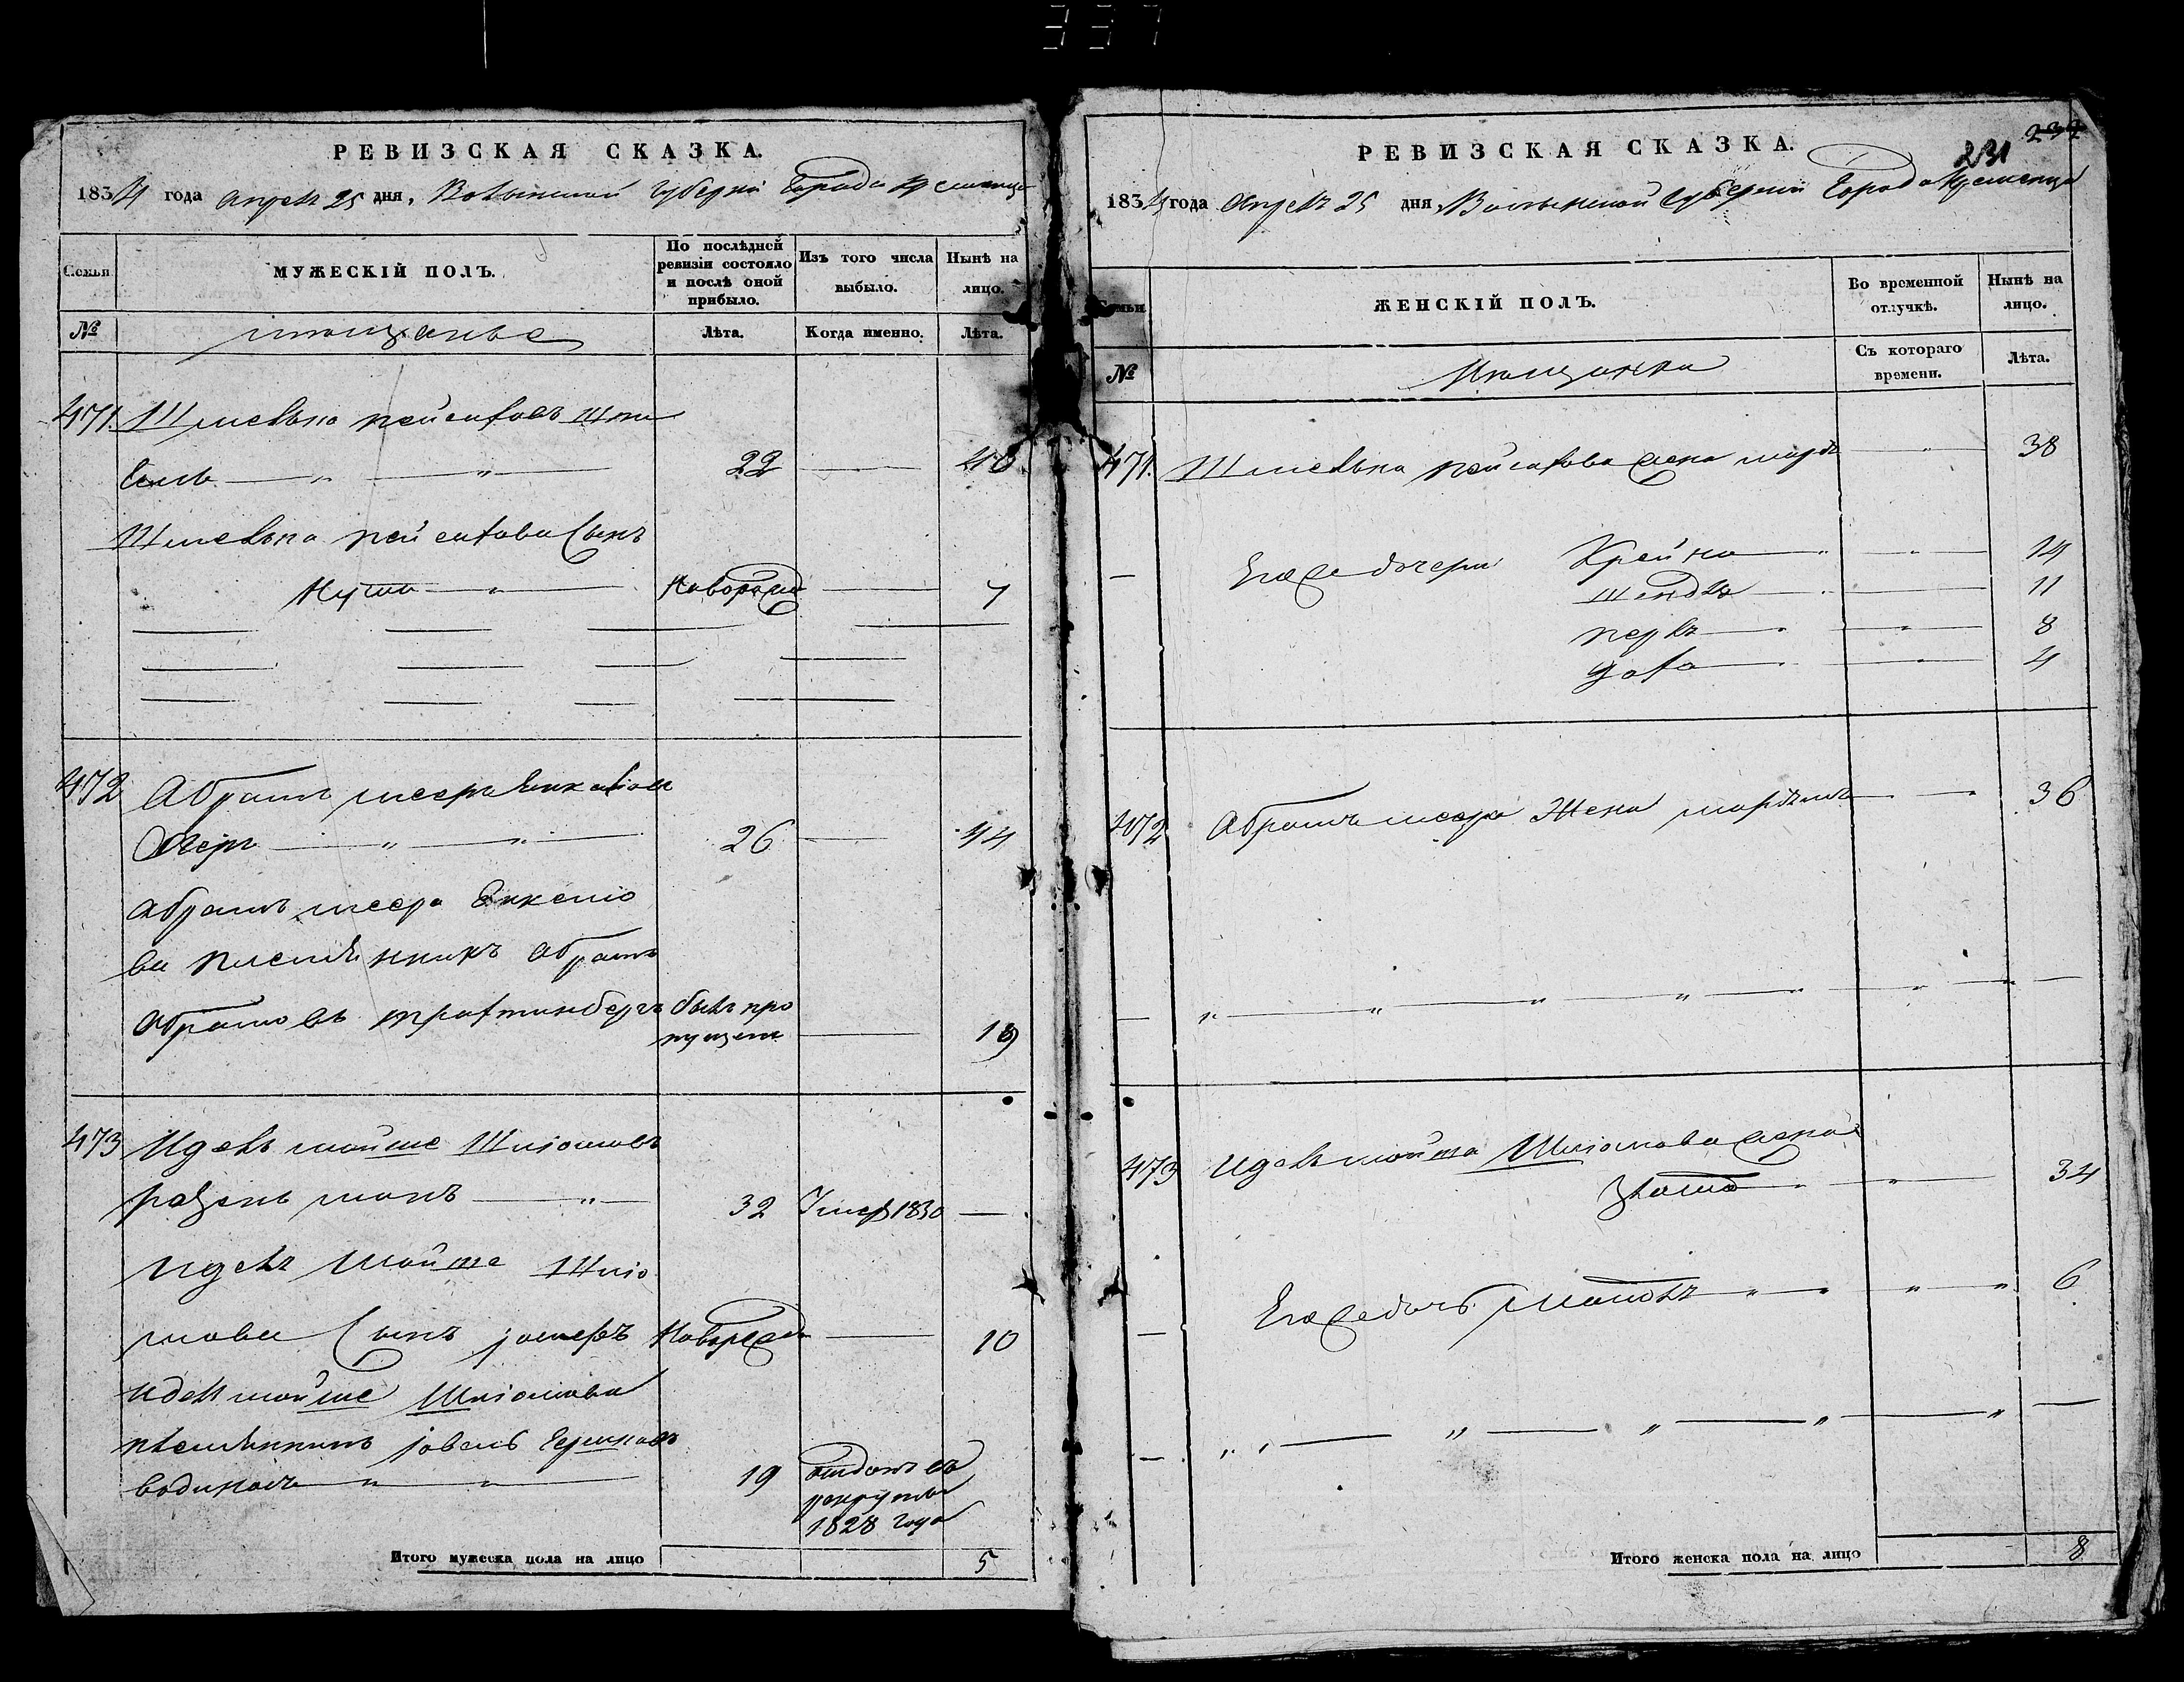 337
РЕВИЗСКАЯ СКАЗКА.
1834 года апрѣля 25 дня, Волынской Губерніи Города Кременца
Семьи
МУЖЕСКІЙ ПОЛЪ.
По послѣдней ревизіи состояло и послѣ оной прибыло.
Изъ того числа выбыло.
Нынѣ на лицо.
№
мещанъе
Лѣта.
Когда именно.
Лѣта.
471. Шмелька Пейсаховъ
22 40
Шмелька Пейсахова Сынъ
Нута Новорожд 7
472 Абрамъ Мееръ
26 44
Абрамъ Меера
ва племянникъ Абрамъ
Абрамовъ Трахтинбергъ былъ про
пущенъ 19
473 Идель Мойше Шліомовъ
32 Умер 1830
Идель Мойше Шліо
мова Сынъ Новорожд 10
Идель Мойше Шліомова
племянникъ
19 отданъ въ
рекруты
1828 года
Итого мужеска пола на лицо 5
РЕВИЗСКАЯ СКАЗКА.
231
1834 года апрѣля 25 дня, Волынской Губерніи Города Кременца
Семьи
ЖЕНСКІЙ ПОЛЪ.
Во временной отлучкѣ.
Нынѣ на лицо.
№
Мещанки
Съ котораго времени.
Лѣта.
471. Шмелька Пейсахова жена 38
Егоже дочери Крейна 14
Шендль 11
Перль 8
4
472 Абрамъ Меера Жена 36
473 Идель Мойша Шліомова жена
Злота 34
Егоже дочь 6
Итого женска пола на лицо 8